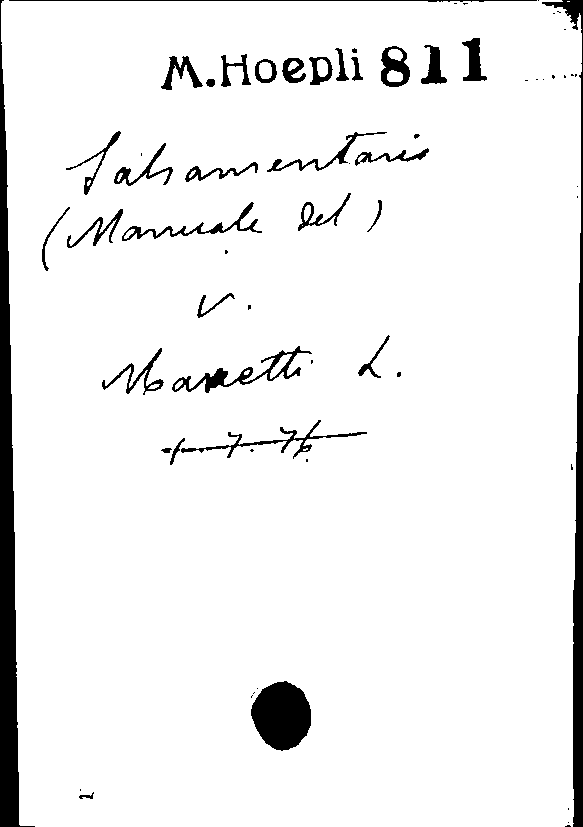 M.Hoepli 811
Salsamentario
(Manuale del)
V.
Manetti L.
1.7.76